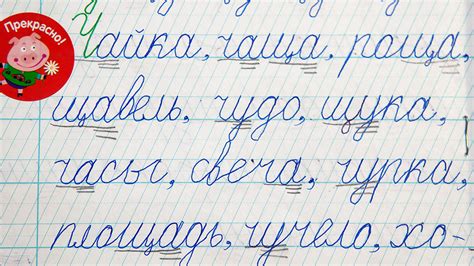 Прекрасно!
Чайка, чаща, роща,
щавель, чудо, щука,
часы, свеча, чурка,
площадь, чучело, хо-